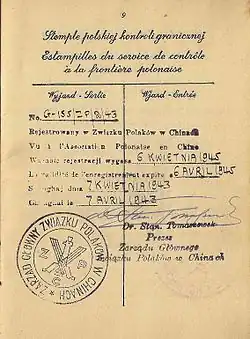 9
Stemple polskiej kontroli granicznej
Estampilles du service de contrôle
à la frontière polonaise
Wyjazd - Sortie
Wjazd - Entrée
No. G-155/ZP/2/43
Rejestrowany w Związku Polaków w Chinach
Vu à l'Association Polonaise en Chine
Ważność rejestracji wygasa 6 KWIETNIA 1945
La validité de l'enregistrement expire 6 AVRIL 1945
Szanghaj dnia 7 KWIETNIA 1943
7 AVRIL 1943
Dr. Stan. Tomaszewski
Prezes
Zarządu Głównego
Związku Polaków w Chinach
ZARZĄD GŁÓWNY ZWIĄZKU POLAKÓW W CHINACH